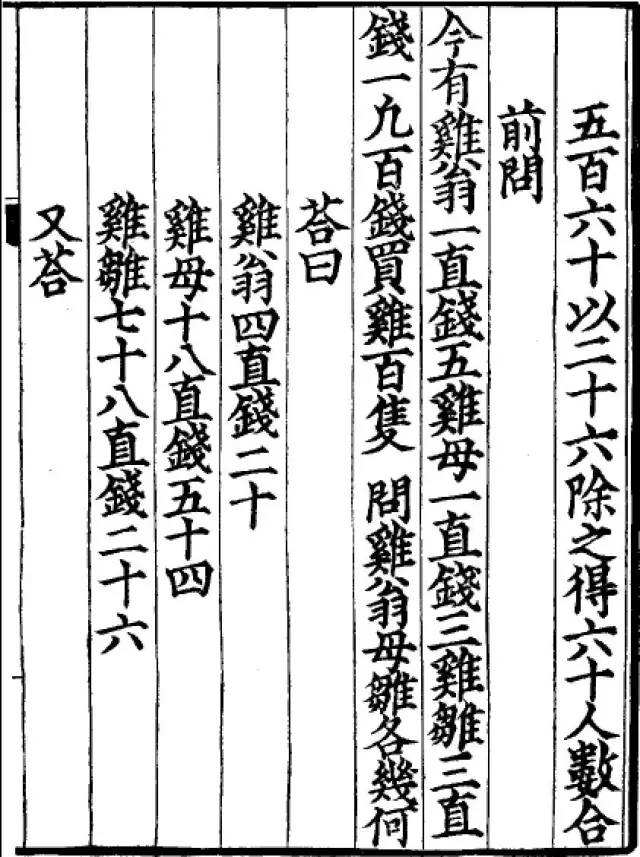 五百六十以二十六除之得六十人數合
前問
今有雞翁一直錢五雞母一直錢三雞雛三直
錢一凡百錢買雞百隻 問雞翁母雛各幾何
荅曰
雞翁四直錢二十
雞母十八直錢五十四
雞雛七十八直錢二十六
又荅